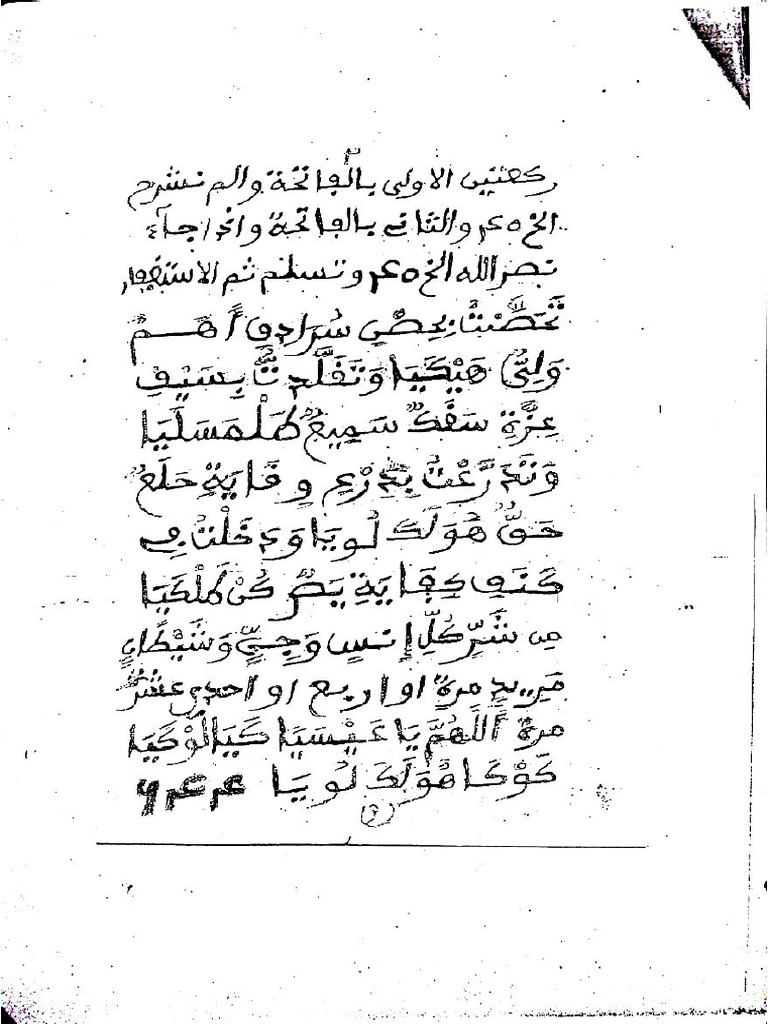 ركعتين الاولى بالفاتحة والم نشرح
الخ ٥ عم والثاني بالفاتحة واذا جآء
نصر الله الخ ٥ عم وتسلم ثم الاستغفار
تَحَصَّنْتُ بِحِصْنِ سُرَادِقِ أَهَم
وَلِيٌّ هَيْكَيَا وَتَقَلَّدتُّ بِسَيْفِ
عِزَّةِ سَقَكٌ سَمِيعٌ طَلْمَسَلَيَا
وَتَدَرَّعْتُ بِدِرْعِ وِقَايَةِ حَلَعٌ
حَقٌّ هُوَلَكَ لُويَا وَدَخَلْتُ فِي
كَنَفِ كِفَايَةِ يَصٌ كُنْ كَمَلْكَيَا
مِن شَرِّ كُلِّ إِنسٍ وَجِنٍّ وَشَيْطَانٍ
مَرِيدٍ مرة او اربع او احدى عشر
مرة اَللَّهُمَّ يَا عَيْسَيَا كَيَا لَوْكَيَا
كَوْكَا هُوَلَكَ لُويَا عم عم